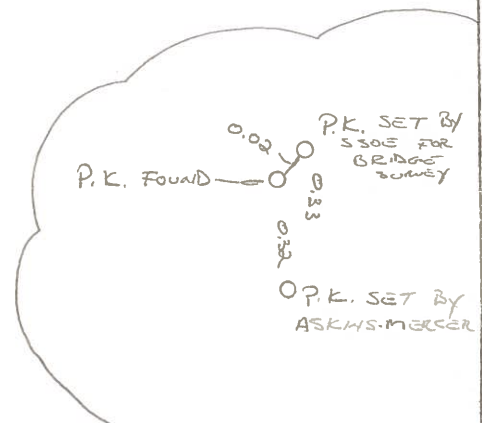 0.02
P.K. SET BY
SSOE FOR
BRIDGE
SURVEY
P.K. FOUND
0.33
0.32
P.K. SET BY
ASKINS-MERCER